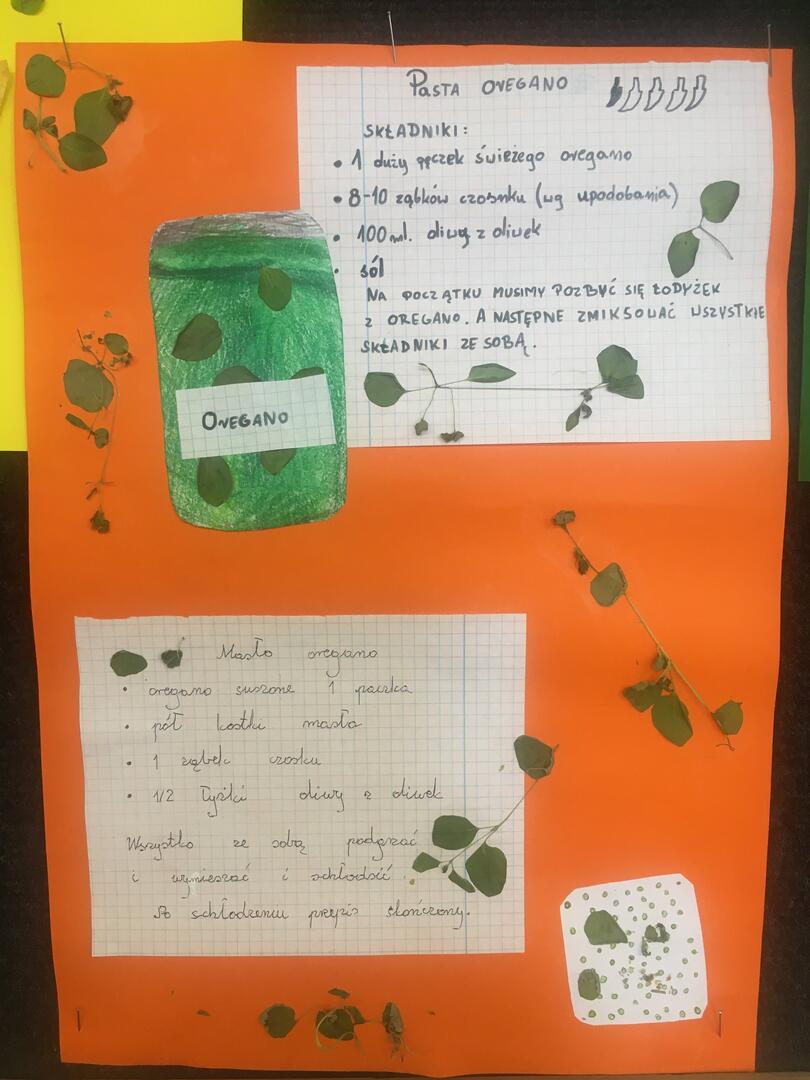 Pasta oregano
SKŁADNIKI:
• 1 duży pęczek świeżego oregano
• 8-10 ząbków czosnku (wg upodobania)
• 100 ml. oliwy z oliwek
• sól
NA POCZĄTKU MUSIMY POZBYĆ SIĘ ŁODYŻEK
Z OREGANO. A NASTĘPNE ZMIKSOWAĆ WSZYSTKIE
SKŁADNIKI ZE SOBĄ.
OREGANO
Masło oregano
• oregano suszone 1 paczka
• pół kostki masła
• 1 ząbek czosku
• 1/2 łyżki oliwy z oliwek
Wszystko ze sobą podgrzać
i wymieszać i schłodzić.
Po schłodzeniu przepis skończony.